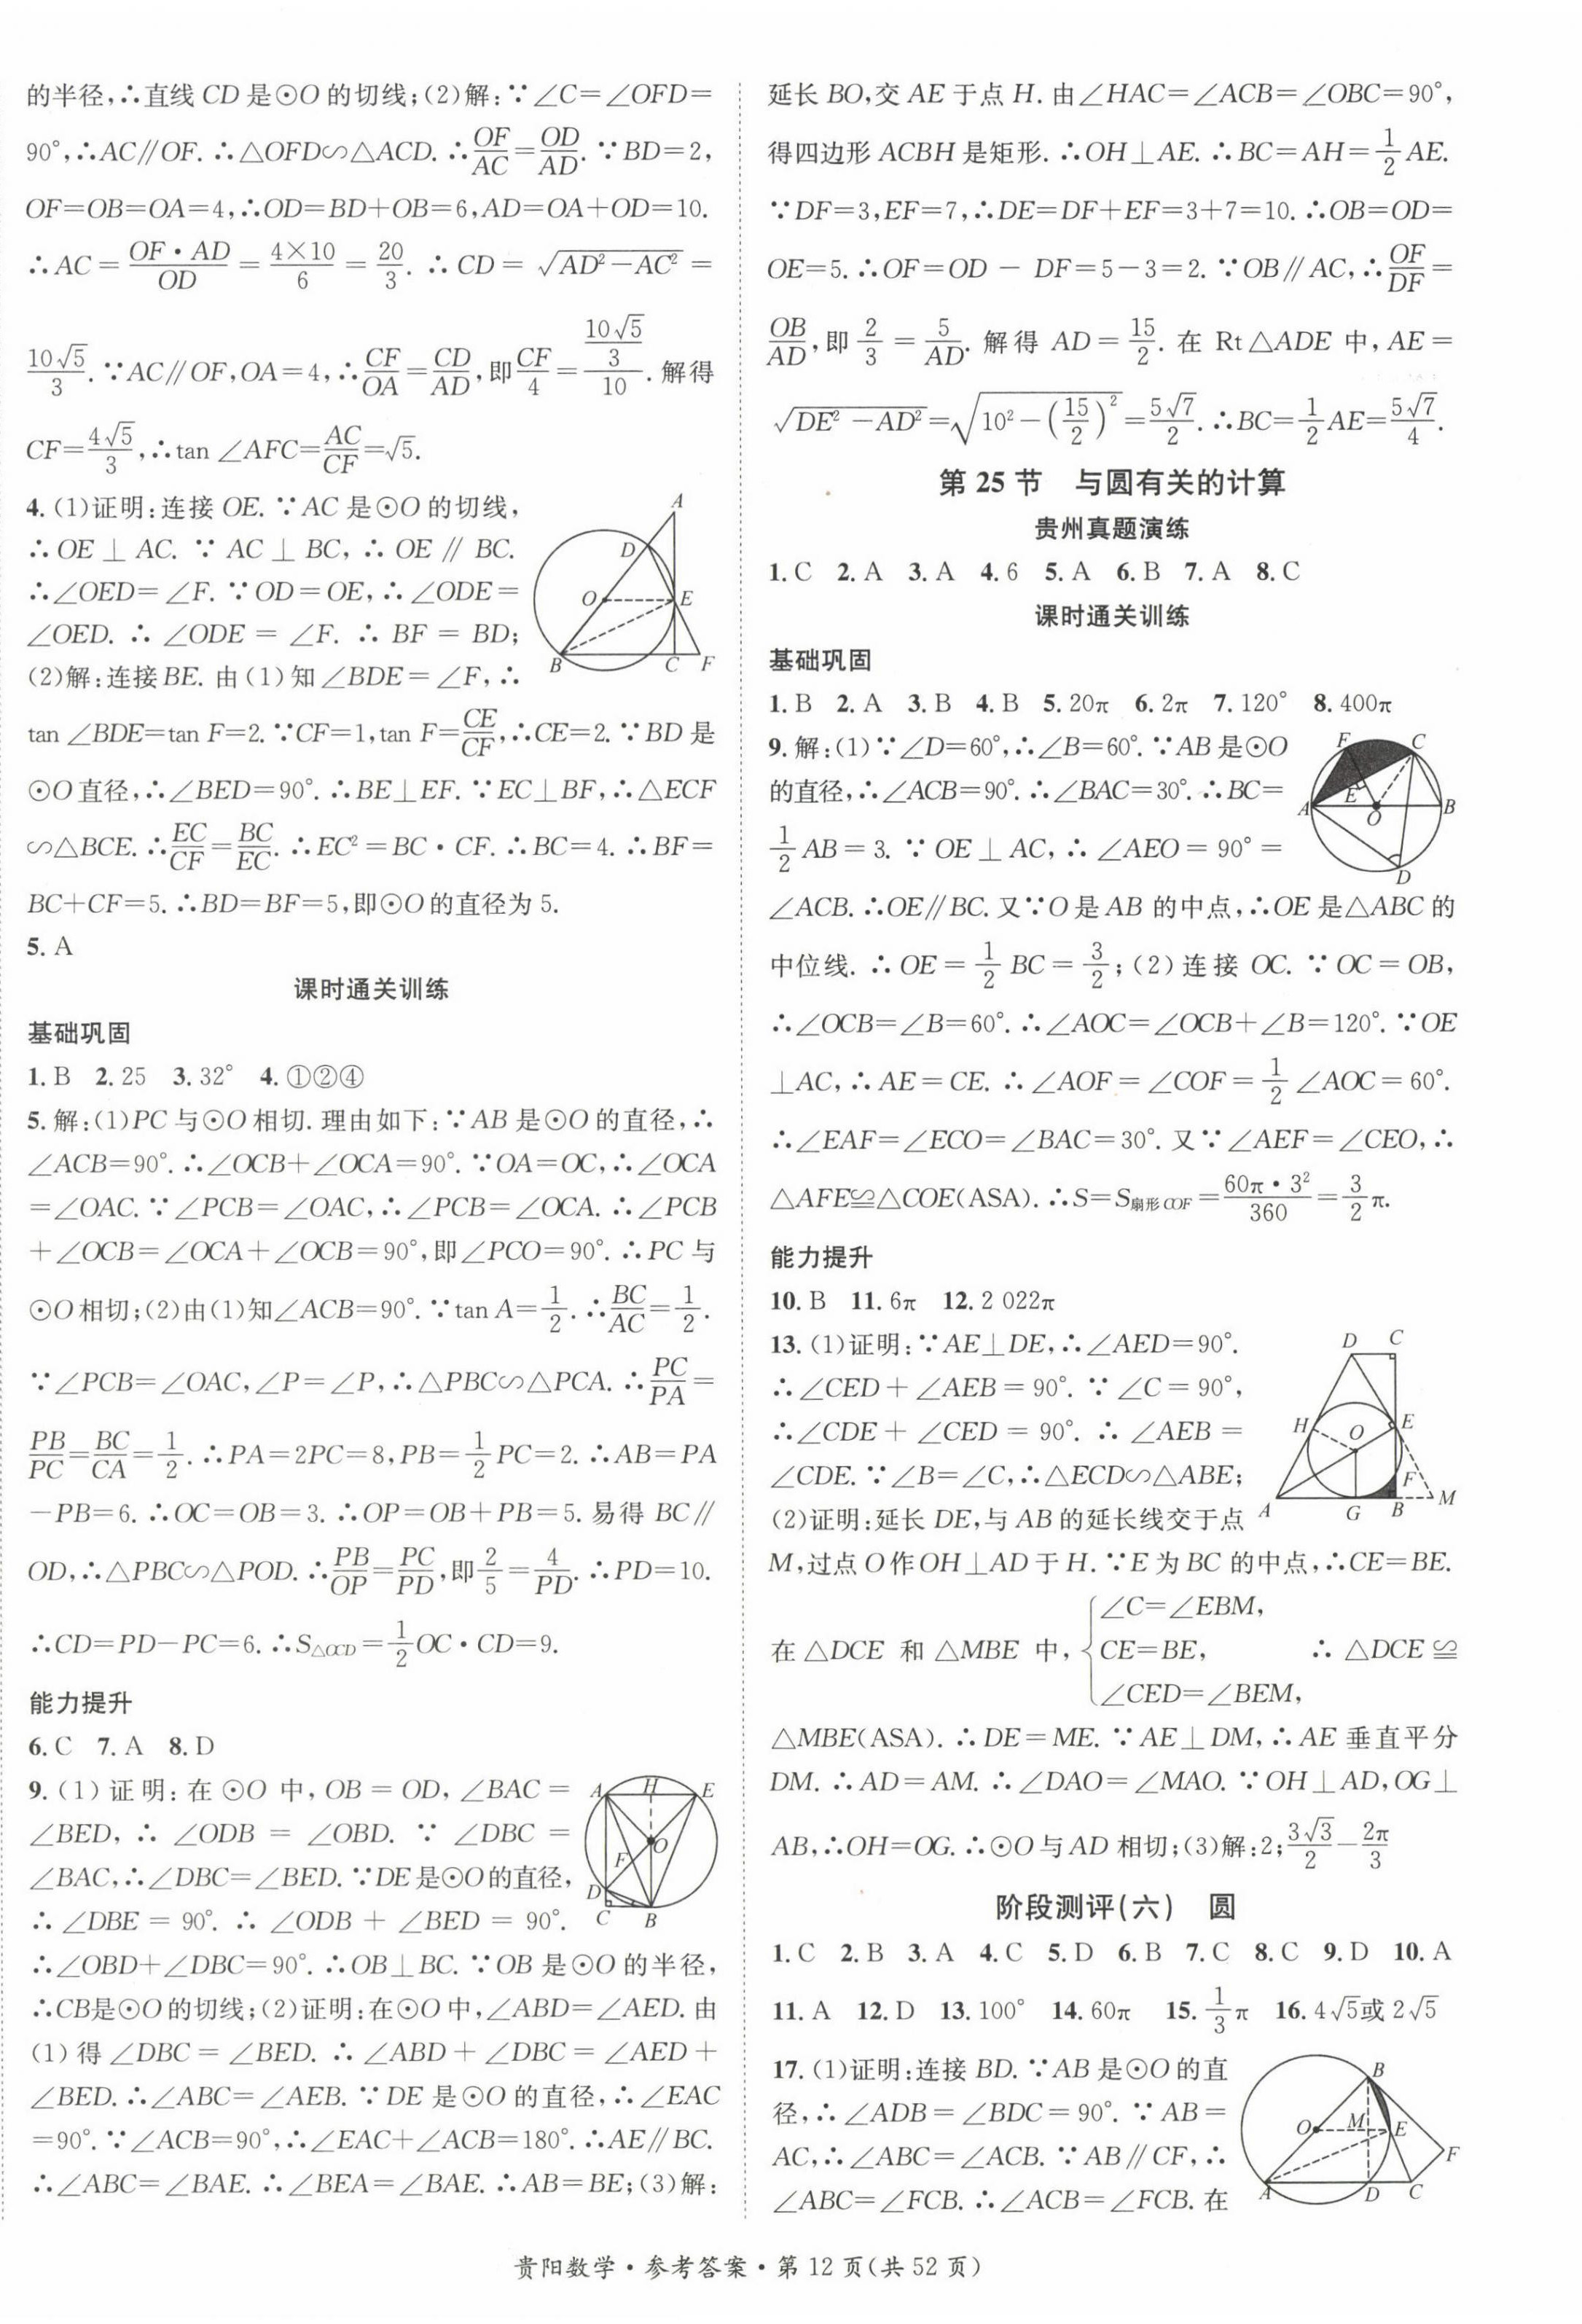 的半径,∴直线 CD 是⊙O 的切线;(2)解:∵∠C=∠OFD=
90°,∴AC∥OF. ∴△OFD∽△ACD. ∴OF/AC=OD/AD. ∵BD=2,
OF=OB=OA=4,∴OD=BD+OB=6,AD=OA+OD=10.
∴AC=OF·AD/OD=4×10/6=20/3. ∴CD=√(AD²-AC²)=
10√5/3. ∵AC∥OF,OA=4,∴CF/OA=CD/AD,即CF/4=(10√5/3)/10. 解得
CF=4√5/3,∴tan ∠AFC=AC/CF=√5.
4. (1)证明:连接 OE. ∵AC 是⊙O 的切线,
∴OE⊥AC. ∵AC⊥BC,∴OE∥BC.
∴∠OED=∠F. ∵OD=OE,∴∠ODE=
∠OED. ∴∠ODE=∠F. ∴BF=BD;
(2)解:连接BE. 由(1)知∠BDE=∠F,∴
tan ∠BDE=tan F=2. ∵CF=1,tan F=CE/CF,∴CE=2. ∵BD 是
⊙O直径,∴∠BED=90°. ∴BE⊥EF. ∵EC⊥BF,∴△ECF
∽△BCE. ∴EC/CF=BC/EC. ∴EC²=BC·CF. ∴BC=4. ∴BF=
BC+CF=5. ∴BD=BF=5,即⊙O的直径为 5.
A
D
O
E
B
C
F
5. A
课时通关训练
基础巩固
1. B 2. 25 3. 32° 4. ①②④
5. 解:(1)PC 与⊙O 相切. 理由如下:∵AB 是⊙O 的直径,∴
∠ACB=90°. ∴∠OCB+∠OCA=90°. ∵OA=OC,∴∠OCA
=∠OAC. ∵∠PCB=∠OAC,∴∠PCB=∠OCA. ∴∠PCB
+∠OCB=∠OCA+∠OCB=90°,即∠PCO=90°. ∴PC 与
⊙O相切;(2)由(1)知∠ACB=90°. ∵tan A=1/2. ∴BC/AC=1/2.
∵∠PCB=∠OAC,∠P=∠P,∴△PBC∽△PCA. ∴PC/PA=
PB/PC=BC/CA=1/2. ∴PA=2PC=8,PB=1/2PC=2. ∴AB=PA
-PB=6. ∴OC=OB=3. ∴OP=OB+PB=5. 易得 BC∥
OD,∴△PBC∽△POD. ∴PB/OP=PC/PD,即2/5=4/PD. ∴PD=10.
∴CD=PD-PC=6. ∴S△OCD=1/2OC·CD=9.
能力提升
6. C 7. A 8. D
9. (1)证明:在⊙O 中,OB=OD,∠BAC=
∠BED,∴∠ODB=∠OBD. ∵∠DBC=
∠BAC,∴∠DBC=∠BED. ∵DE是⊙O的直径,
∴∠DBE=90°. ∴∠ODB+∠BED=90°.
∴∠OBD+∠DBC=90°. ∴OB⊥BC. ∵OB 是⊙O 的半径,
∴CB是⊙O的切线;(2)证明:在⊙O中,∠ABD=∠AED. 由
(1)得∠DBC=∠BED. ∴∠ABD+∠DBC=∠AED+
∠BED. ∴∠ABC=∠AEB. ∵DE 是⊙O 的直径,∴∠EAC
=90°. ∵∠ACB=90°,∴∠EAC+∠ACB=180°. ∴AE∥BC.
∴∠ABC=∠BAE. ∴∠BEA=∠BAE. ∴AB=BE;(3)解:
A
H
E
O
F
D
C
B
延长 BO,交 AE 于点 H. 由∠HAC=∠ACB=∠OBC=90°,
得四边形 ACBH 是矩形. ∴OH⊥AE. ∴BC=AH=1/2AE.
∵DF=3,EF=7,∴DE=DF+EF=3+7=10. ∴OB=OD=
OE=5. ∴OF=OD-DF=5-3=2. ∵OB∥AC,∴OF/DF=
OB/AD,即2/3=5/AD. 解得 AD=15/2. 在 Rt△ADE 中,AE=
√(DE²-AD²)=√(10²-(15/2)²)=5√7/2. ∴BC=1/2AE=5√7/4.
第 25 节 与圆有关的计算
贵州真题演练
1. C 2. A 3. A 4. 6 5. A 6. B 7. A 8. C
课时通关训练
基础巩固
1. B 2. A 3. B 4. B 5. 20π 6. 2π 7. 120° 8. 400π
9. 解:(1)∵∠D=60°,∴∠B=60°. ∵AB是⊙O
的直径,∴∠ACB=90°. ∴∠BAC=30°. ∴BC=
1/2AB=3. ∵OE⊥AC,∴∠AEO=90°=
∠ACB. ∴OE∥BC. 又∵O是AB 的中点,∴OE是△ABC的
中位线. ∴OE=1/2BC=3/2;(2)连接 OC. ∵OC=OB,
∴∠OCB=∠B=60°. ∴∠AOC=∠OCB+∠B=120°. ∵OE
⊥AC,∴AE=CE. ∴∠AOF=∠COF=1/2∠AOC=60°.
∴∠EAF=∠ECO=∠BAC=30°. 又∵∠AEF=∠CEO,∴
△AFE≌△COE(ASA). ∴S=S扇形COF=60π·3²/360=3/2π.
F
C
E
A
O
B
D
能力提升
10. B 11. 6π 12. 2 022π
13. (1)证明:∵AE⊥DE,∴∠AED=90°.
∴∠CED+∠AEB=90°. ∵∠C=90°,
∴∠CDE+∠CED=90°. ∴∠AEB=
∠CDE. ∵∠B=∠C,∴△ECD∽△ABE;
(2)证明:延长 DE,与 AB的延长线交于点
M,过点O作OH⊥AD于H. ∵E为BC 的中点,∴CE=BE.
∠C=∠EBM,
在△DCE 和△MBE 中,{CE=BE, ∴△DCE≌
∠CED=∠BEM,
△MBE(ASA). ∴DE=ME. ∵AE⊥DM,∴AE 垂直平分
DM. ∴AD=AM. ∴∠DAO=∠MAO. ∵OH⊥AD,OG⊥
AB,∴OH=OG. ∴⊙O与AD 相切;(3)解:2;3√3/2-2π/3
D
C
H
O
E
F
A
G
B
M
阶段测评(六) 圆
1. C 2. B 3. A 4. C 5. D 6. B 7. C 8. C 9. D 10. A
11. A 12. D 13. 100° 14. 60π 15. 1/3π 16. 4√5或2√5
17. (1)证明:连接 BD. ∵AB 是⊙O 的直
径,∴∠ADB=∠BDC=90°. ∵AB=
AC,∴∠ABC=∠ACB. ∵AB∥CF,∴
∠ABC=∠FCB. ∴∠ACB=∠FCB. 在
B
O
M
E
F
A
D
C
贵阳数学·参考答案·第 12 页(共 52 页)